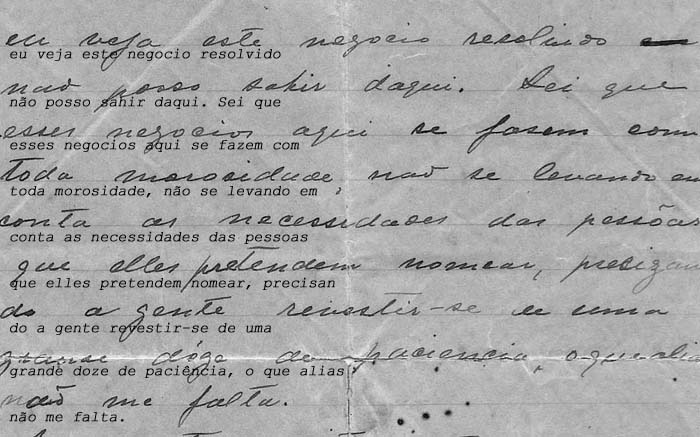 eu veja este negocio resolvido
eu veja este negocio resolvido
nao posso sahir daqui. Sei que
não posso sahir daqui. Sei que
esses negocios aqui se fasem com
esses negocios aqui se fazem com
toda morosidade nao se levando em
toda morosidade, não se levando em
conta as necessidades das pessôas
conta as necessidades das pessoas
que elles pretendem nomear, precizan
que elles pretendem nomear, precisan
do a gente revestir-se de uma
do a gente revestir-se de uma
grande dóze de paciencia, o que alias
grande doze de paciência, o que alias
não me falta.
não me falta.